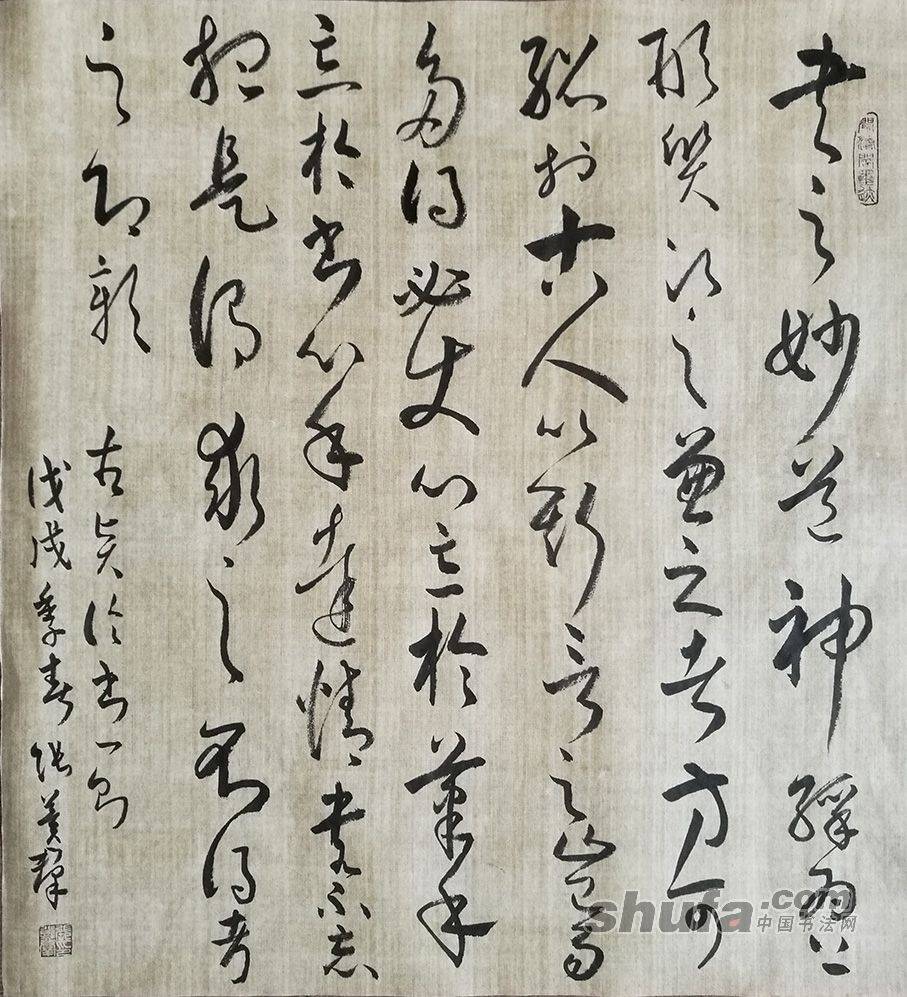 書之妙道神彩為上
形質次之兼之者方可
紹於古人以斯言之豈易
多得必使心忘於筆手
忘於書心手達情書不忘
想是謂求之不得考
之即彰
古賢論書一則
戊戌季春張
shufa.com
中国书法网